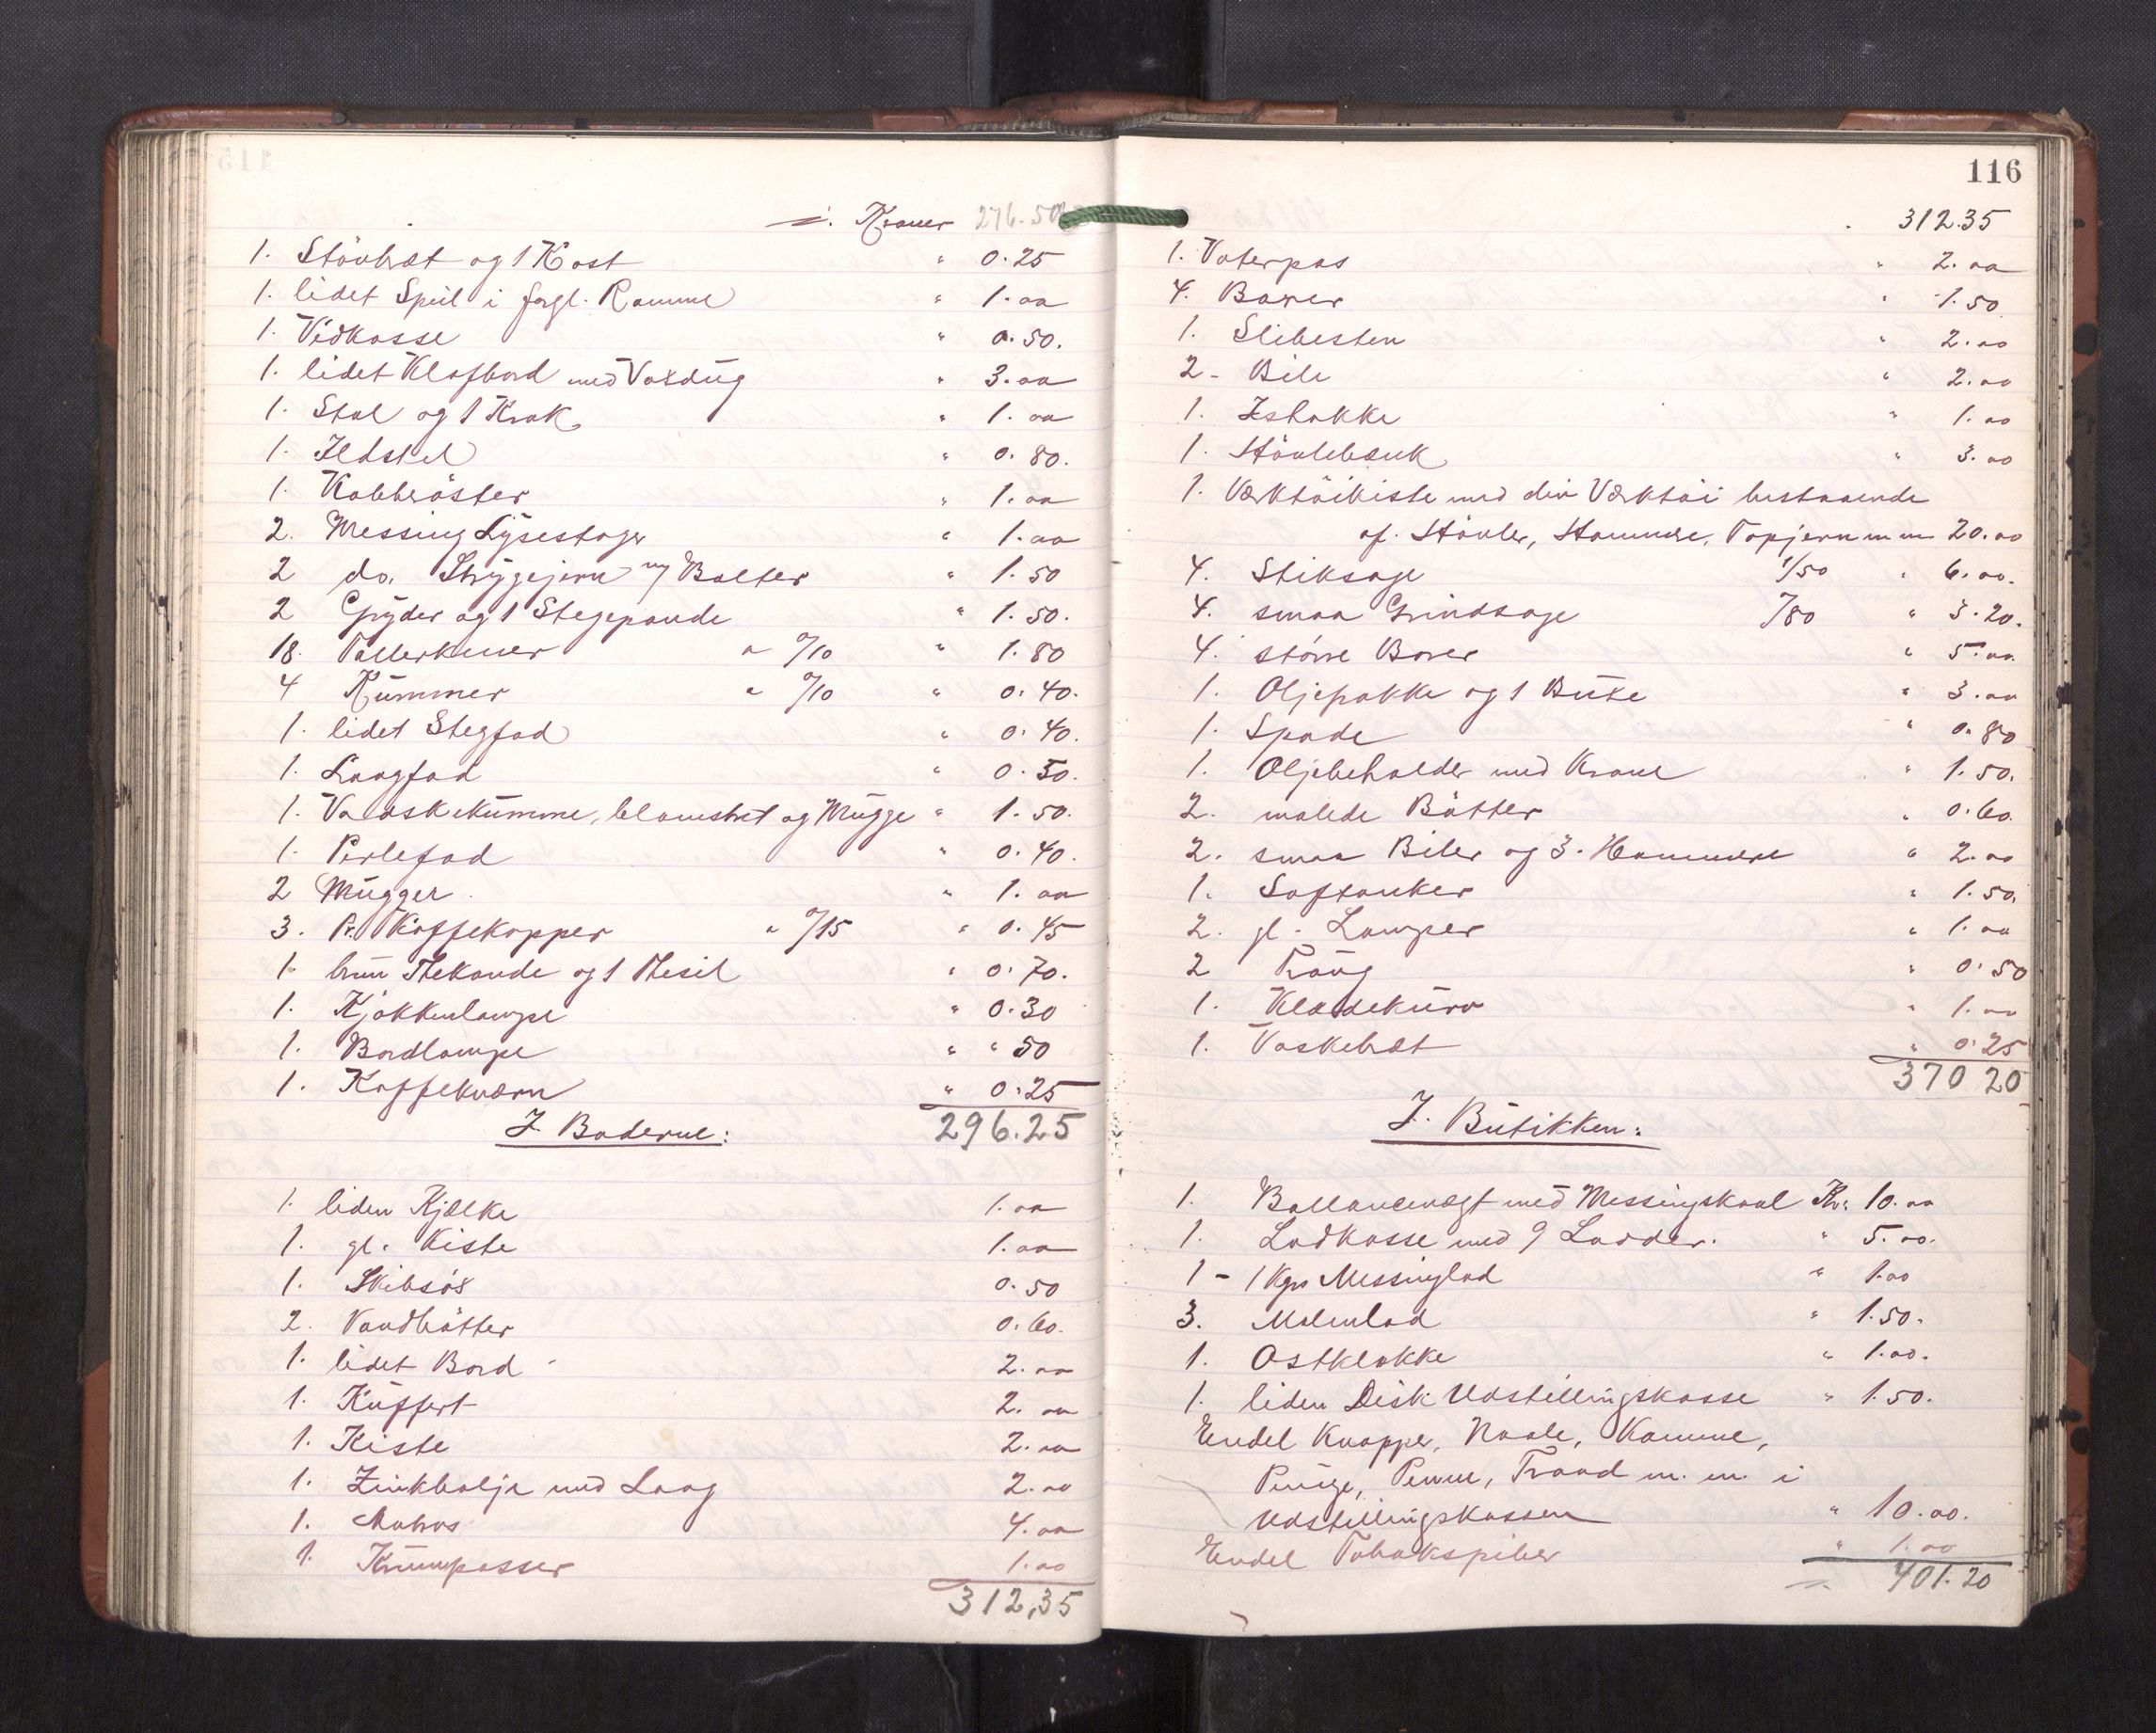 Kroner 276.50
1. Støvbræt og 1 Kost " 0.25
1. lidet Speil i forgl. Ramme " 1.00
1. Vedkasse " 0.50.
1. lidet Klafbord med Voxdug " 3.00
1. Stol og 1 Krak " 1.00
1. Ildskel " 0.80.
1. Kobberöster " 1.00
2. Messing Lysestager " 1.00
2 do. Strygejern m/ Bolter " 1.50
2 Gryder og 1 Stegepande " 1.50.
18. Tallerkener a 0/10 " 1.80
4 Kummer a 0/10 " 0.40.
1. lidet Stegfad " 0.40.
1. Laagfad " 0.50.
1. Vaskekumme, blomstret og Mugge " 1.50.
1. Perlefad " 0.40.
2 Mugger " 1.00
3. Pr. Kaffekopper a 0/15 " 0.45
1. brun Thekande og 1 Thesil " 0.70.
1. Kjøkkenlampe " 0.30
1. Bordlampe " " 50
1. Kaffekværn " 0.25
I Boderne: 296.25
1. liden Kjælke 1.00
1. gl. Kiste 1.00
1. Skibsöx 0.50
2. Vandbøtter 0.60.
1. lidet Bord 2.00
1. Kuffert 2.00
1. Kiste 2.00
1. Zinkbalje med Laag 2.00
1. Matras 4.00
1. Krumpasser 1.00
312,35
116
312.35
1. Vaterpas " 2.00
4. Borer " 1.50
1. Slibesten " 2.00
2 - Bile " 2.00
1. Ishakke " 1.00
1. Høvlebænk " 3.00
1. Værktöikiste med div Værktöi bestaaende
af. Høvler, Hammere, Tapjern m m 20.00
4. Stiksage 1/50 " 6.00.
4. smaa Grindsage 0/80 " 3.20.
4. större Borer " 5.00.
1. Oljepakke og 1 Buxe " 3.00
1. Spade " 0.80
1. Oljebeholder med Krane " 1.50.
2. malede Bøtter " 0.60.
2. smaa Biler og 3. Hammere " 2.00
1. Saftanker " 1.50.
2. gl. Lamper " 1.00
2 Traug " 0.50
1. Klædekurv " 1.00
1. Vaskebræt " 0.25
370 20
I. Butikken:
1. Ballancevægt med Messingskaal Kr: 10.00
1. Lodkasse med 9 Lodder. " 5.00.
1 - 1 Kgr Messinglod " 1.00
3. Malmlod " 1.50.
1. Ostklokke " 1.00.
1. liden Disk Udstillingskasse " 1.50.
Endel Knapper, Naale, Kamme,
Punge, Penne, Traad m. m. i
Udstillingskassen " 10.00.
Endel Tobakspiber " 1.00
401.20